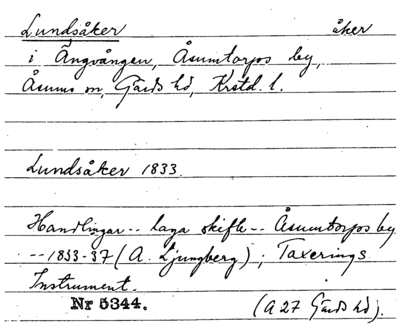 Lundsåker åker
i Ängvången, Åsumtorps by,
Åsums sn, Gärds hd, Krstd. l.
Lundsåker 1833
Handlingar -- laga skifte -- Åsumtorps by
-- 1833-37 (A. Ljungberg); Taxerings
Instrument.
Nr 5344. (A 27 Gärds hd).